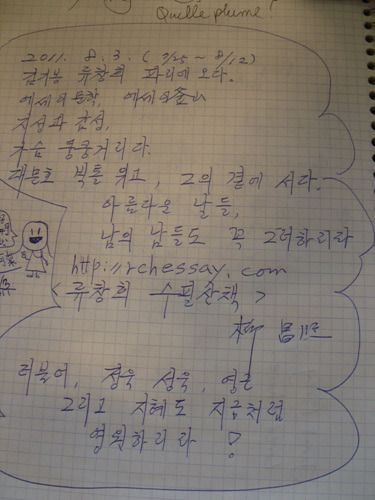 Quelle plume
2011. 8. 3. ( 7/25 ~ 8/12)
류창희 파리에 오다.
에세의 문학, 에세의
지성과 감성,
가슴 쿵쿵거리다.
대문호 빅톨 위고, 그의 곁에 서다.
아름다운 날들,
남의 날들도 꼭 그러하리라
http://rchessay.com
< 류창희 수필산책 >
柳 昌
더불어, 정욱 성욱,
그리고 지혜도 지금처럼
영원하리라 !